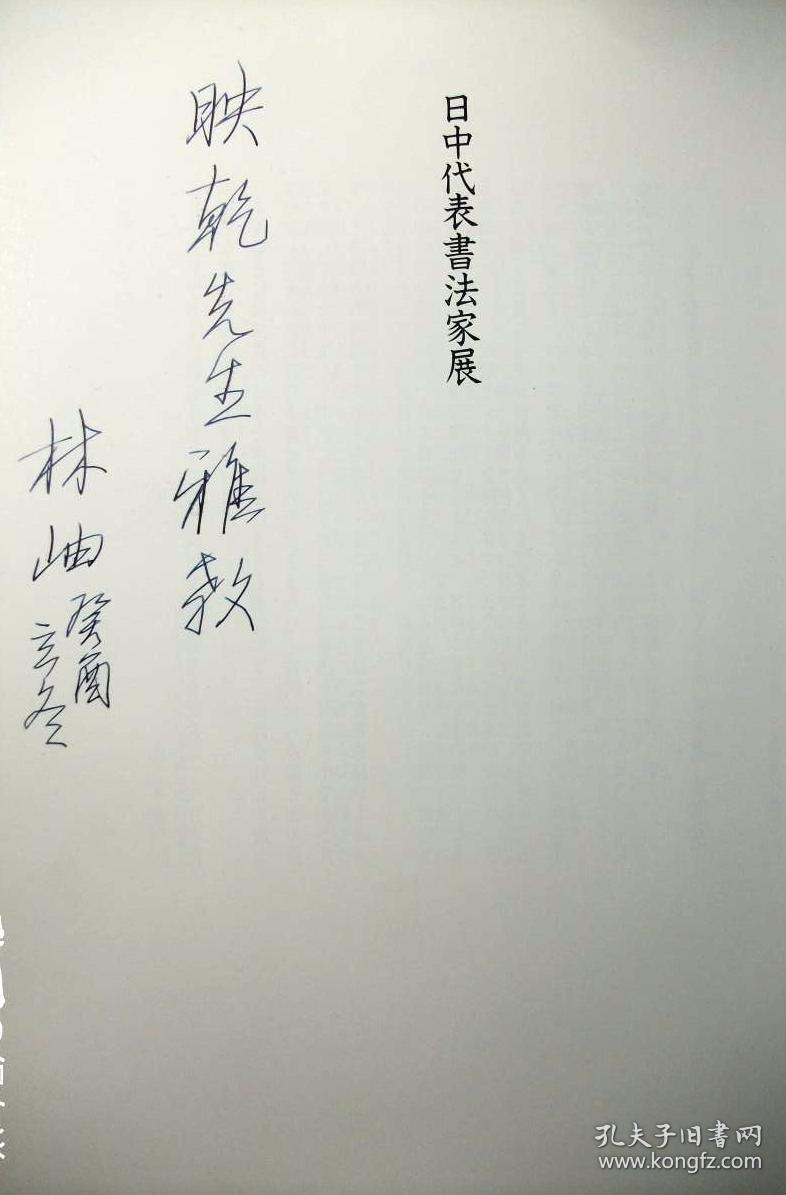 日中代表書法家展
映乾先生雅教
林岫
癸酉
立冬
孔夫子旧書网
www.kongfz.com